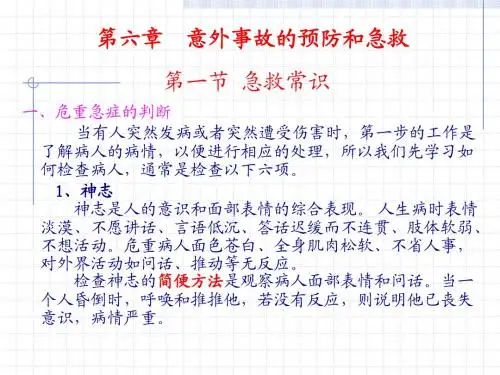 第六章　意外事故的预防和急救
第一节 急救常识
一、危重急症的判断
当有人突然发病或者突然遭受伤害时，第一步的工作是
了解病人的病情，以便进行相应的处理，所以我们先学习如
何检查病人，通常是检查以下六项。
1、神志
神志是人的意识和面部表情的综合表现。 人生病时表情
淡漠、不愿讲话、言语低沉、答话迟缓而不连贯、肢体软弱、
不想活动。危重病人面色苍白、全身肌肉松软、不省人事，
对外界活动如问话、推动等无反应。
检查神志的简便方法是观察病人面部表情和问话。当一
个人昏倒时，呼唤和推推他，若没有反应，则说明他已丧失
意识，病情严重。